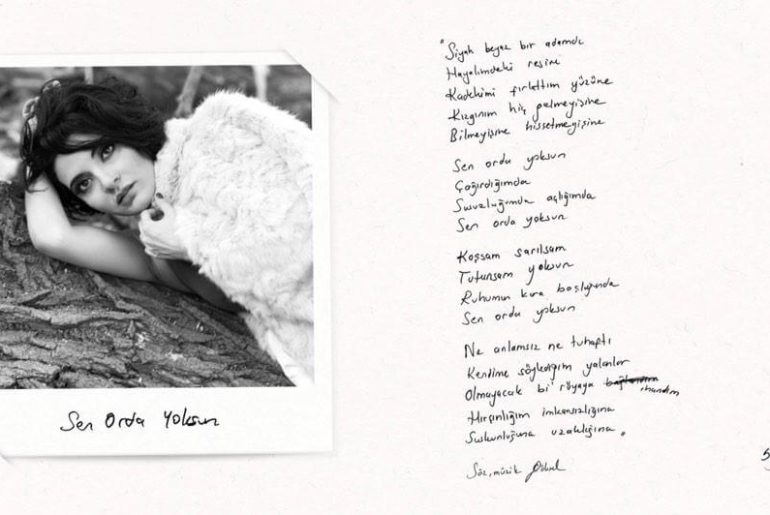 Sen Orda Yoksun
"Siyah beyaz bir adamdı
Hayalimdeki resim
Kadehimi fırlattım yüzüne
Kızgınım hiç gelmeyişine
Bilmeyişine hissetmeyişine
Sen orda yoksun
Çağırdığımda
Susuzluğumda açlığımda
Sen orda yoksun
Koşsam sarılsam
Tutunsam yoksun
Ruhumun kıra boşluğunda
Sen orda yoksun
Ne anlamsız ne tuhaftı
Kendime söylediğim yalanlar
Olmayacak bi' rüyaya inandım
Hırçınlığım imkansızlığına
Suskunluğuna uzaklığına"
Söz, müzik
5